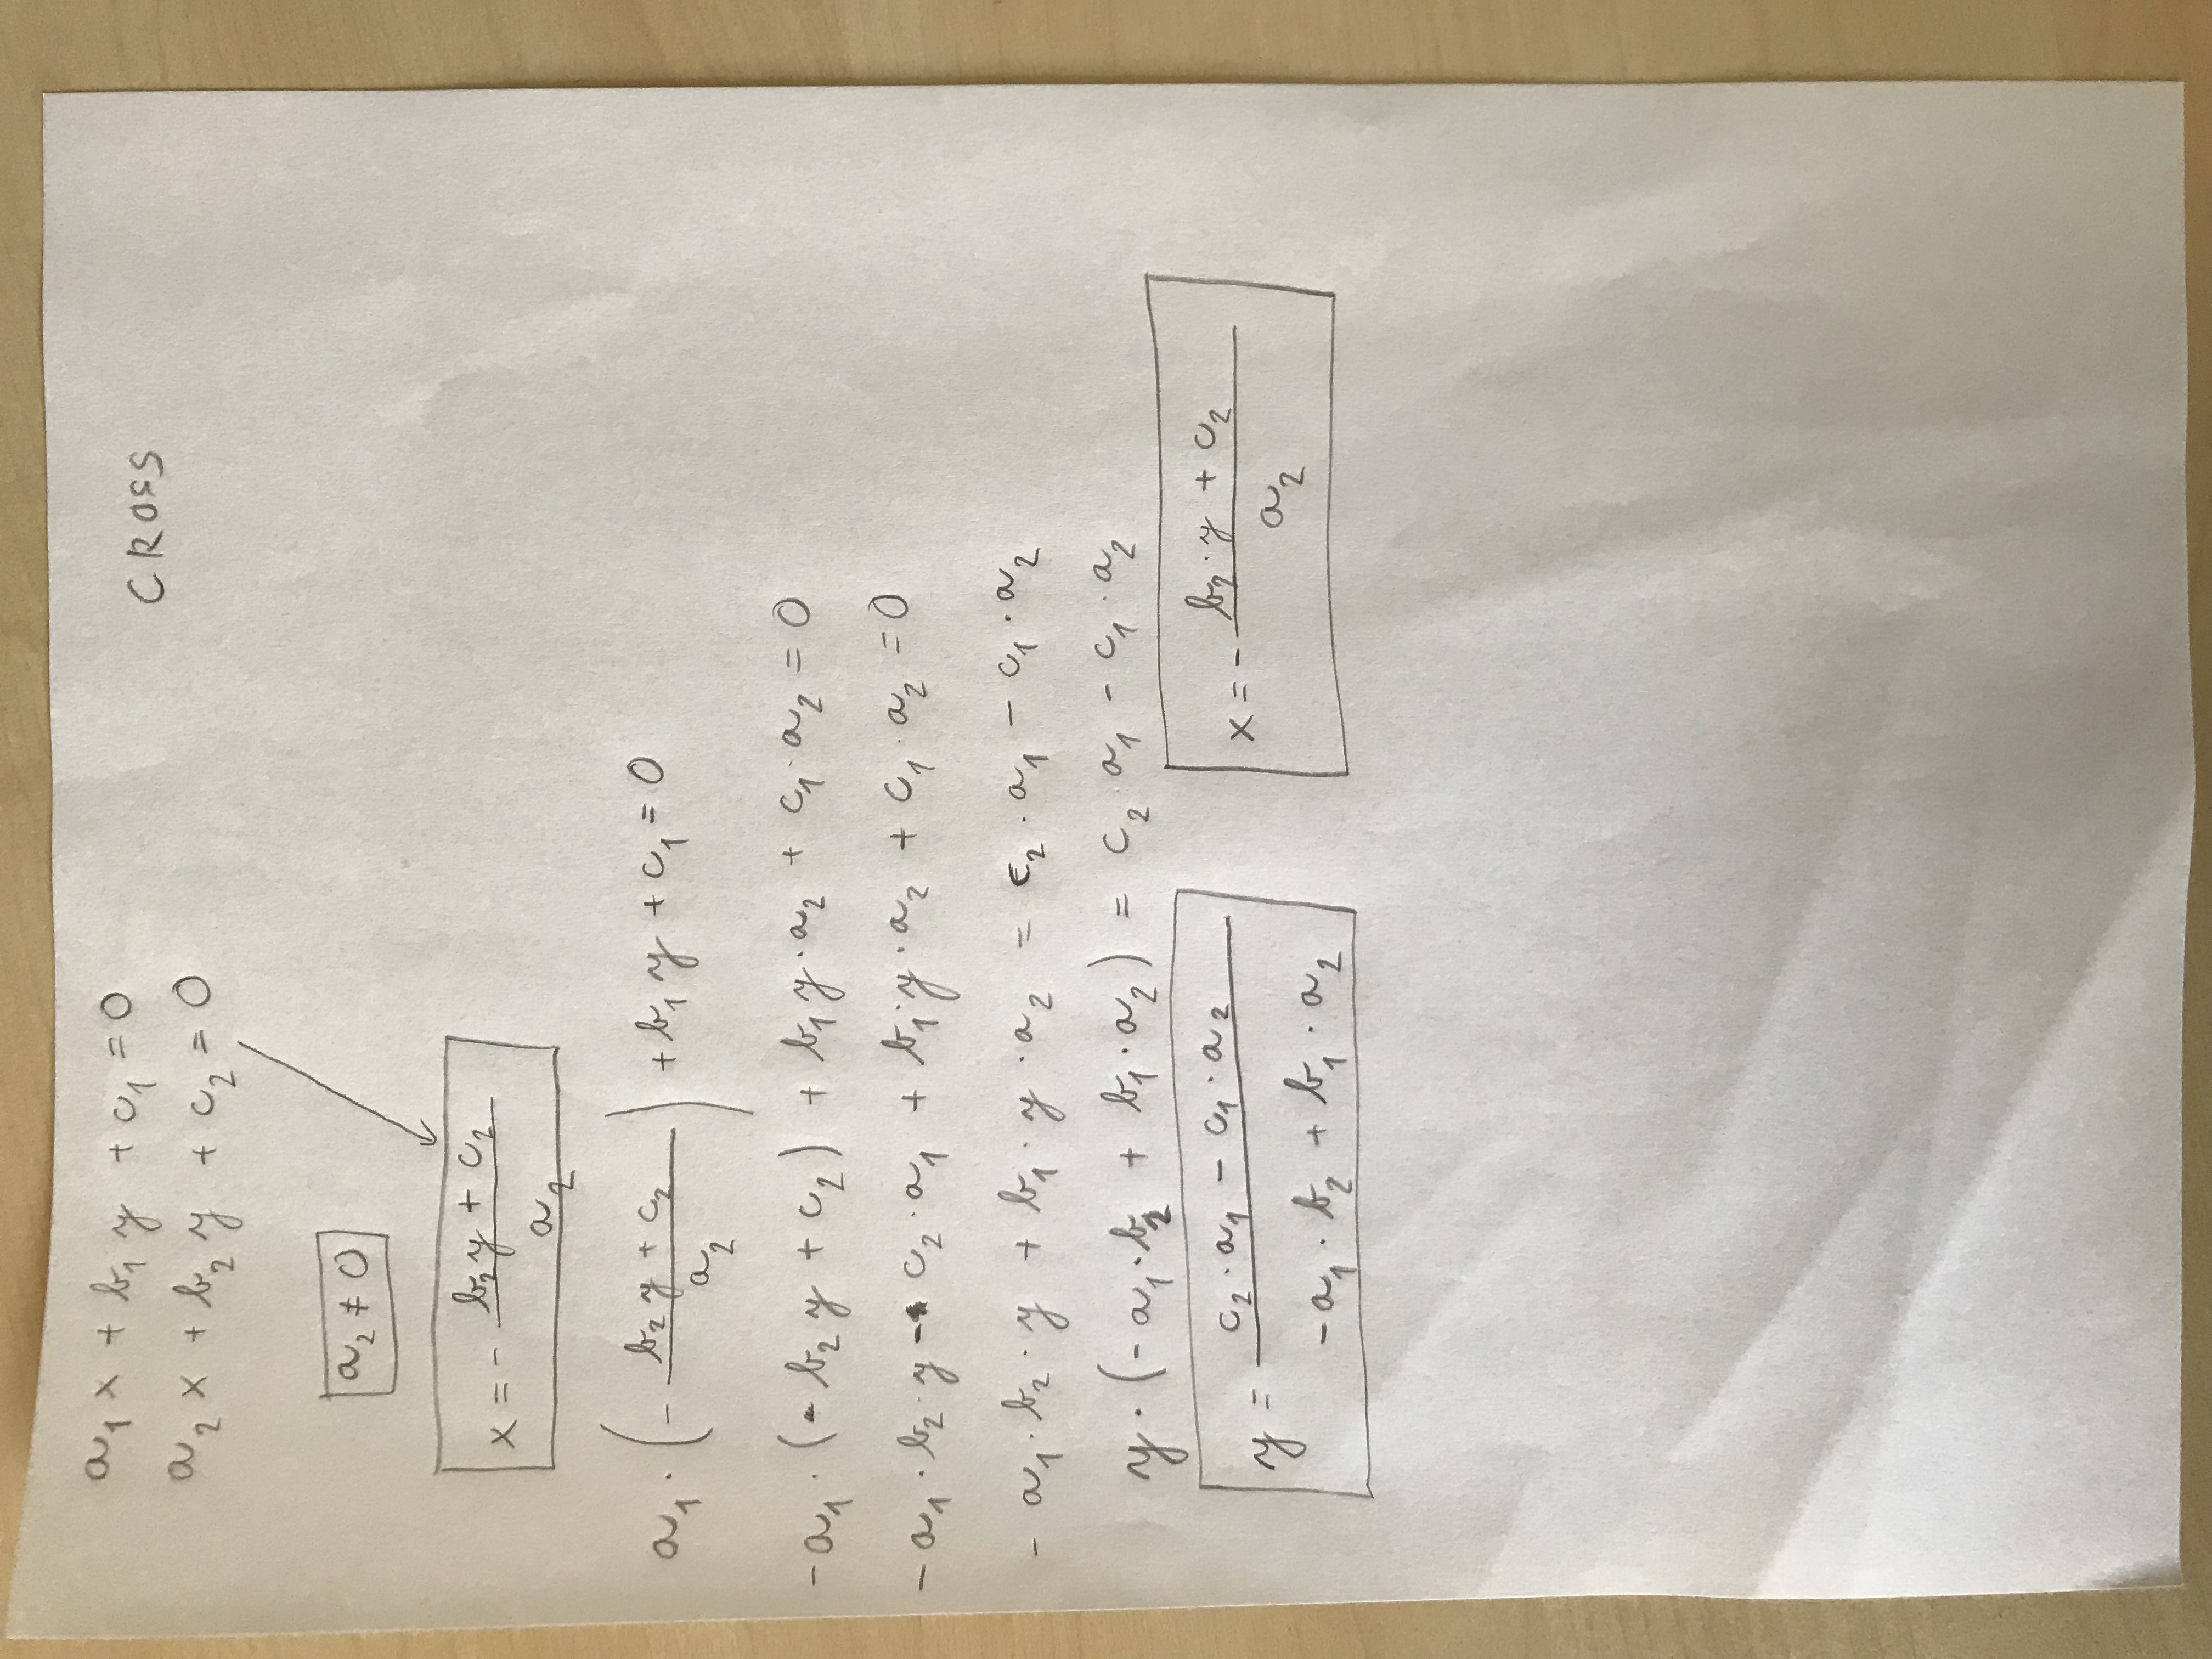 a₁x + b₁y + c₁ = 0
CROSS
a₂x + b₂y + c₂ = 0
a₂ ≠ 0
x = - (b₂y + c₂) / a₂
a₁ · (- (b₂y + c₂) / a₂) + b₁y + c₁ = 0
-a₁ · (- b₂y + c₂) + b₁y · a₂ + c₁ · a₂ = 0
-a₁ · b₂ · y - c₂ · a₁ + b₁ · y · a₂ + c₁ · a₂ = 0
- a₁ · b₂ · y + b₁ · y · a₂ = c₂ · a₁ - c₁ · a₂
y · (-a₁ · b₂ + b₁ · a₂) = c₂ · a₁ - c₁ · a₂
y = (c₂ · a₁ - c₁ · a₂) / (-a₁ · b₂ + b₁ · a₂)
x = - (b₂ · y + c₂) / a₂